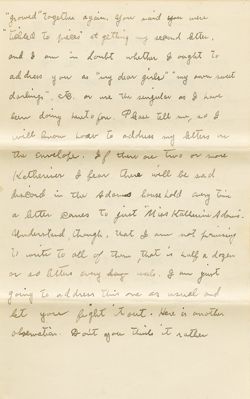 "proud" together again. You said you were
"tickled to pieces" at getting my second letter,
and I am in doubt whether I ought to
address you as "my dear girls" "my own sweet
darlings", &c. or use the singular as I have
been doing hereto. Please tell me, so I
will know how to address my letters on
the envelope. If there are two or more
Katherines I fear there will be sad
discord in the Adams household every time
a letter comes to just "Miss Katherine Adams".
Understand though, that I am not promising
to write to all of them, that is half a dozen
or so letters every day. I am just
going to address this one as usual and
let you fight it out. Here is another
observation. Don't you think it rather